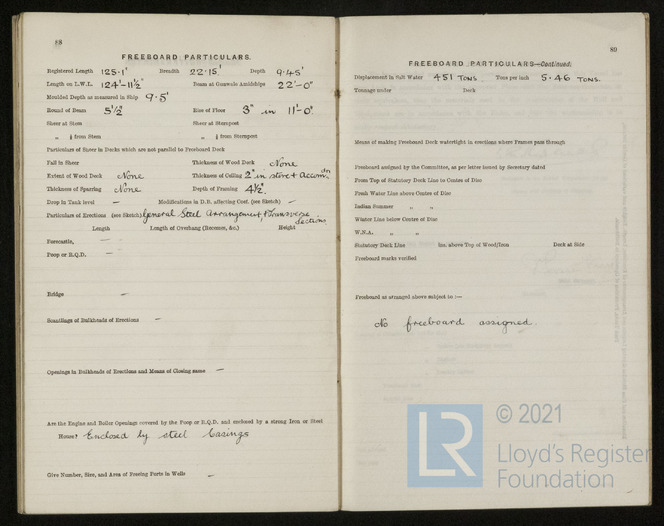 88
FREEBOARD PARTICULARS.
Registered Length 125·1' Breadth 22·15' Depth 9·45'
Length on L.W.L. 124'-11½" Beam at Gunwale Amidships 22'-0"
Moulded Depth as measured in Ship 9·5'
Round of Beam 5½" Rise of Floor 3" in 11'-0"
Sheer at Stem Sheer at Sternpost
„ ⅛ from Stem „ ⅛ from Sternpost
Particulars of Sheer in Decks which are not parallel to Freeboard Deck
Fall in Sheer Thickness of Wood Deck None
Extent of Wood Deck None Thickness of Ceiling 2" in store & Accomdn
Thickness of Sparring None Depth of Framing 4½"
Drop in Tank level — Modifications in D.B. affecting Coef. (see Sketch) —
Particulars of Erections (see Sketch) General Steel Arrangement, & Transverse Sections
Length Length of Overhang (Recesses, &c.) Height
Forecastle, —
Poop or R.Q.D. —
Bridge —
Scantlings of Bulkheads of Erections —
Openings in Bulkheads of Erections and Means of Closing same —
Are the Engine and Boiler Openings covered by the Poop or R.Q.D. and enclosed by a strong Iron or Steel
House? Enclosed by steel Casings
Give Number, Size, and Area of Freeing Ports in Wells —
89
FREEBOARD PARTICULARS—Continued.
Displacement in Salt Water 451 TONS Tons per inch 5·46 TONS.
Tonnage under Deck
Means of making Freeboard Deck watertight in erections where Frames pass through
Freeboard assigned by the Committee, as per letter issued by Secretary dated
From Top of Statutory Deck Line to Centre of Disc
Fresh Water Line above Centre of Disc
Indian Summer „ „
Winter Line below Centre of Disc
W.N.A. „ „
Statutory Deck Line ins. above Top of Wood/Iron Deck at Side
Freeboard marks verified
Freeboard as arranged above subject to :—
No freeboard assigned.
LR
© 2021
Lloyd's Register
Foundation